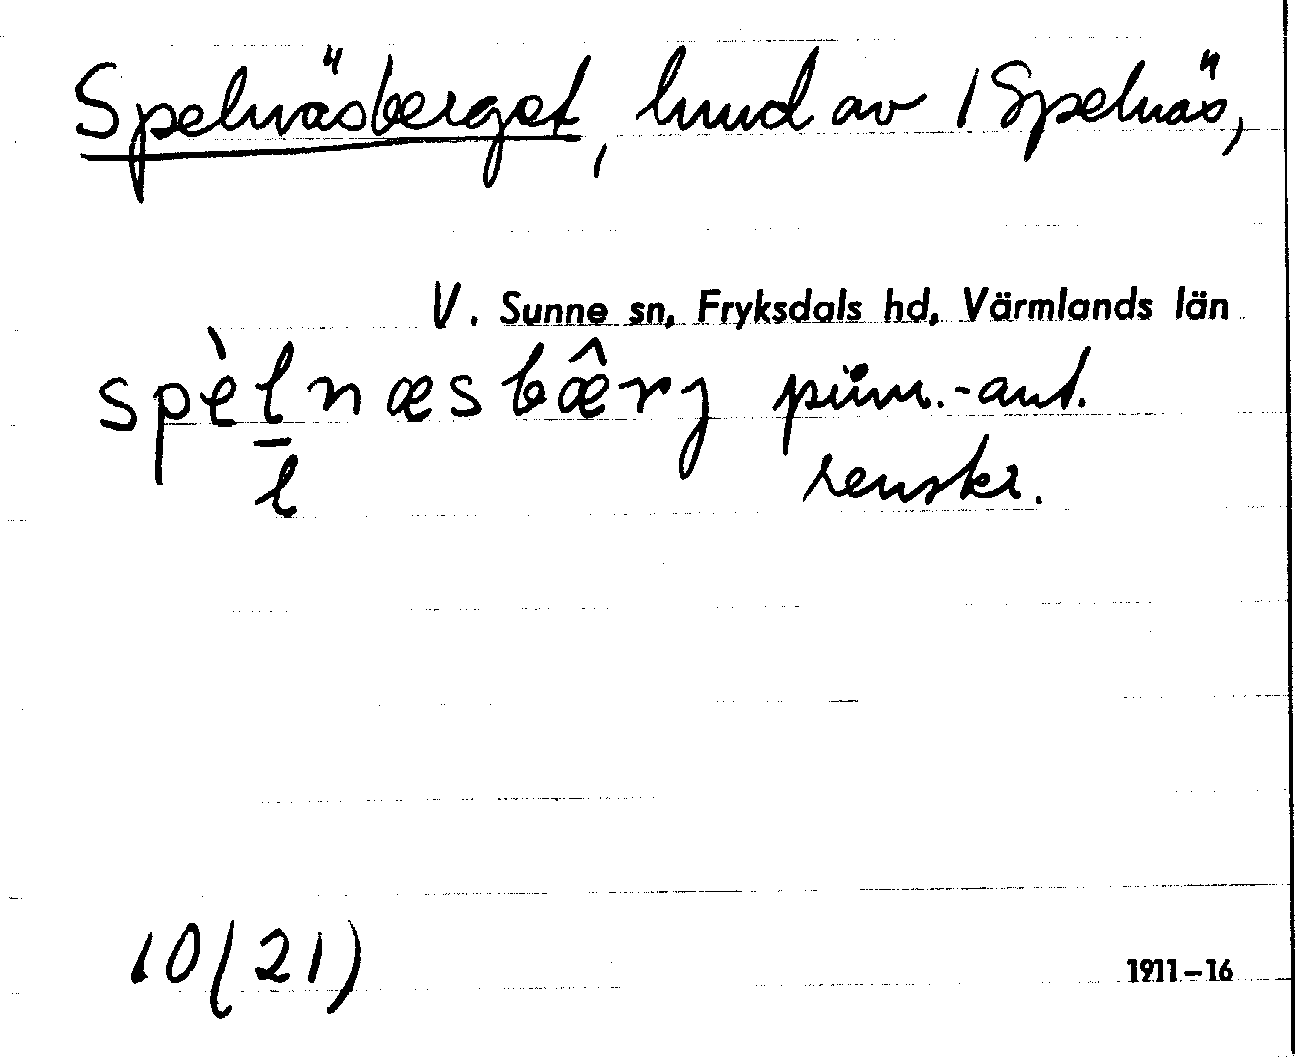 Spelnäsberget, hmd av 1 Spelnäs,
V. Sunne sn, Fryksdals hd, Värmlands län
spèl̠næsbæ̂rj prim.-ant.
l renskr.
10(21)
1911–16